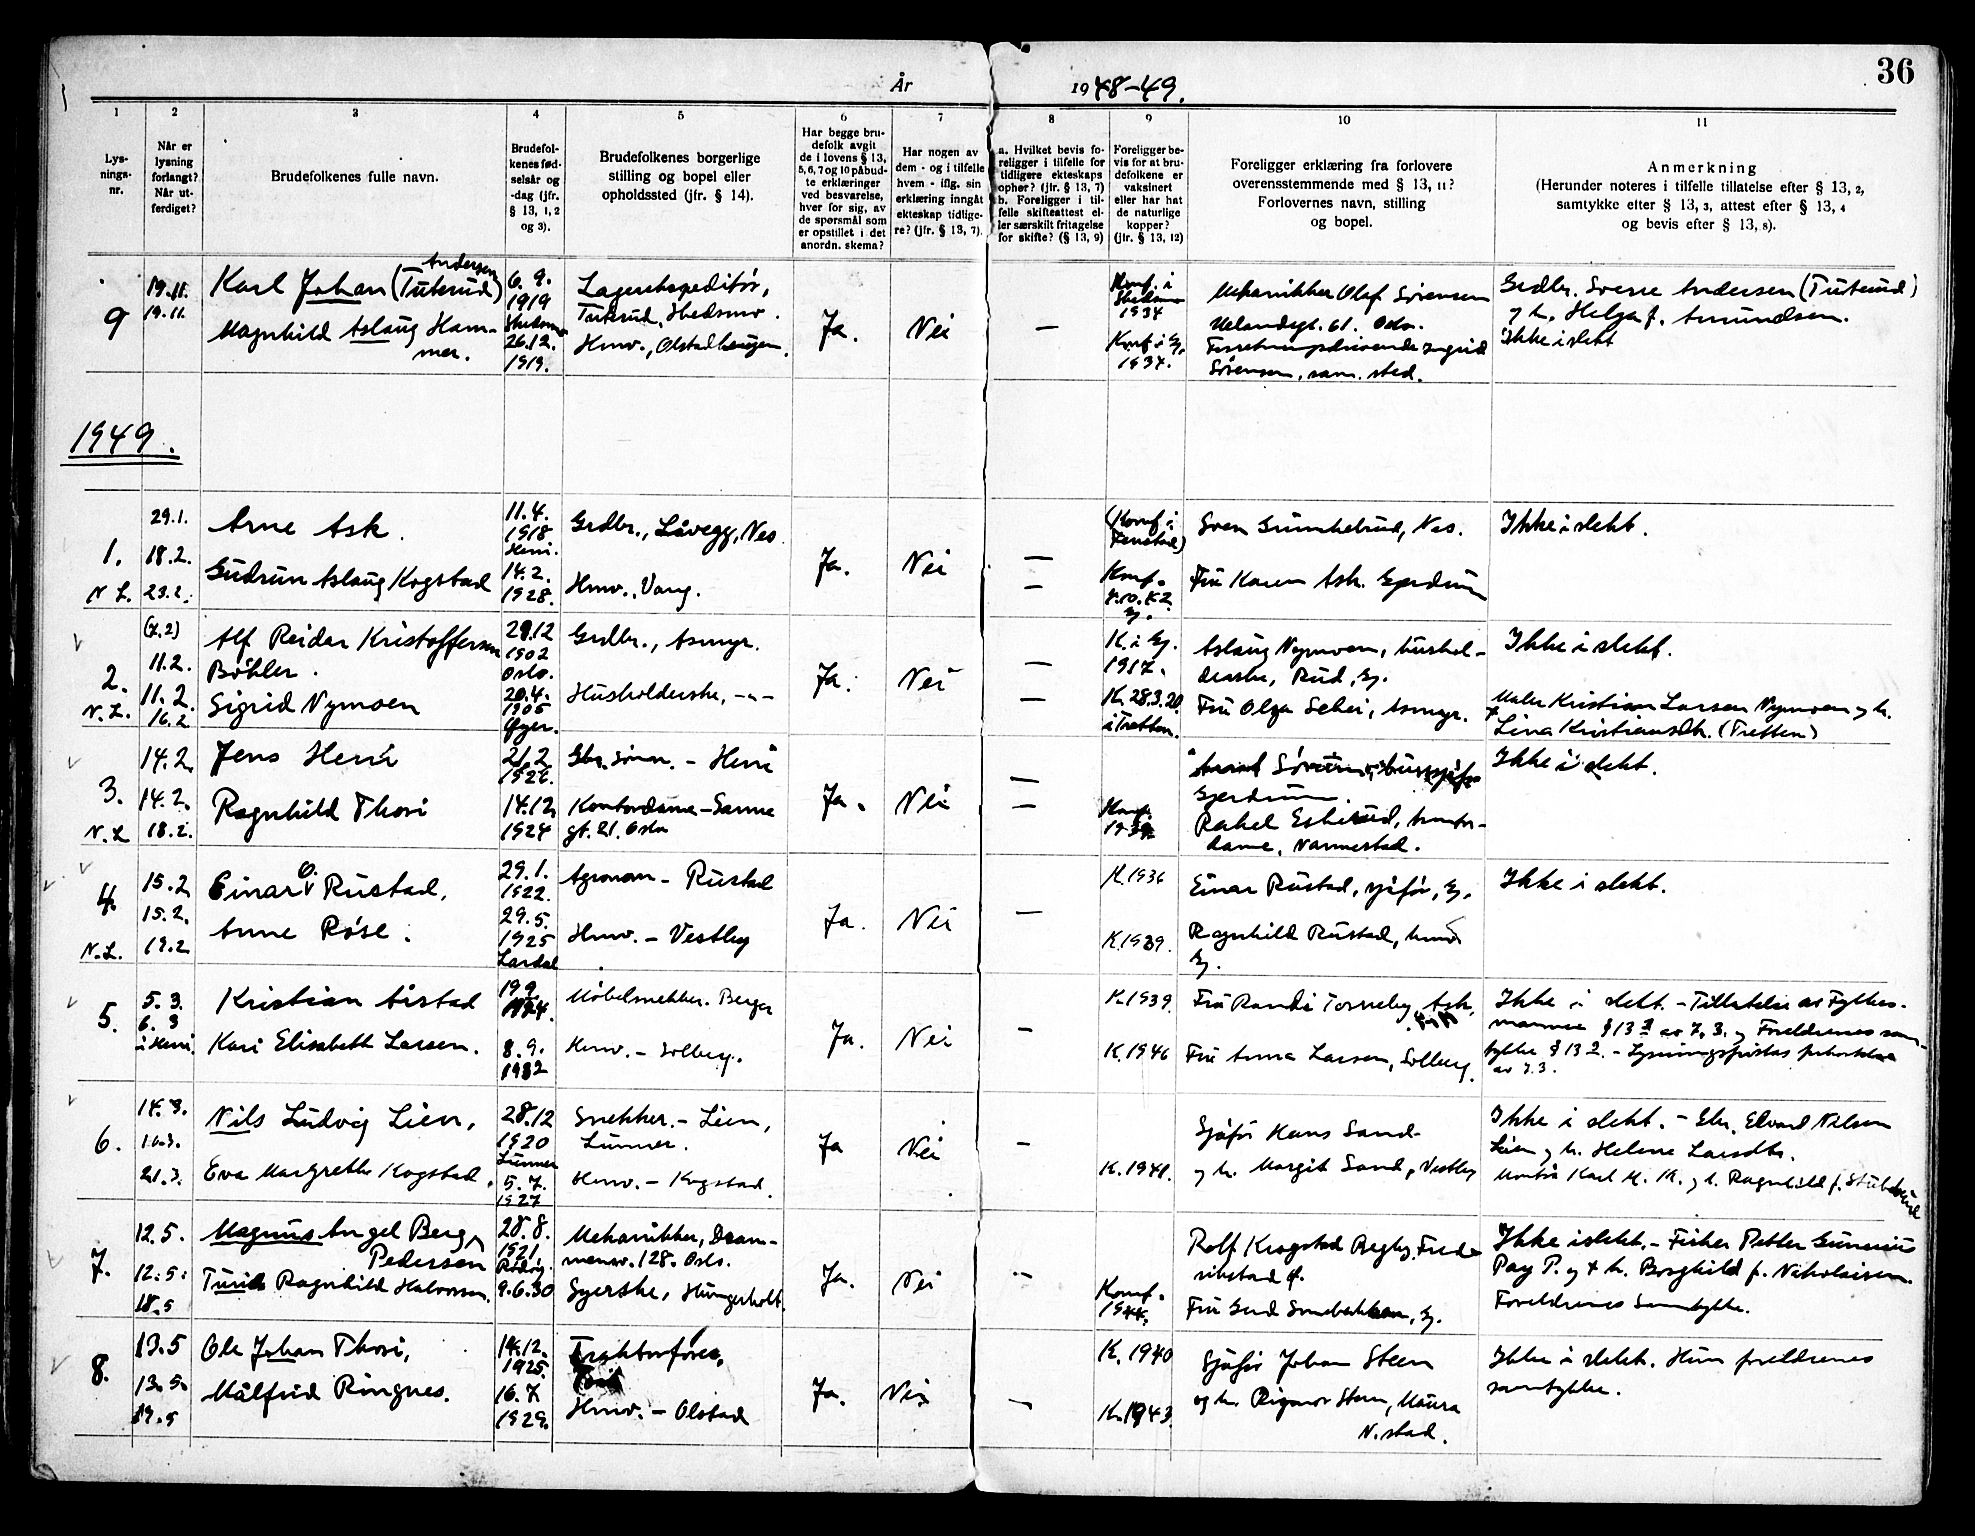 36
År 1948-49.
1 2 3 4 5 6 7 8 9 10 11
Lys-
nings-
nr.
Når er
lysning
forlangt?
Når ut-
ferdiget?
Brudefolkenes fulle navn.
Brudefol-
kenes fød-
selsår og
-dag (jfr.
§ 13, 1, 2
og 3).
Brudefolkenes borgerlige
stilling og bopel eller
opholdssted (jfr. § 14).
Har begge bru-
defolk avgit
de i lovens § 13,
5, 6, 7 og 10 påbud-
te erklæringer
ved besvarelse,
hver for sig, av
de spørsmål som
er opstillet i det
anordn. skema?
Har nogen av
dem - og i tilfelle
hvem - iflg. sin
erklæring inngåt
ekteskap tidlige-
re? (jfr. § 13, 7).
a. Hvilket bevis fo-
religger i tilfelle for
tidligere ekteskaps
ophør? (jfr. § 13, 7)
b. Foreligger i til-
felle skifteattest el-
ler særskilt fritagelse
for skifte? (§ 13, 9)
Foreligger be-
vis for at bru-
defolkene er
vaksinert
eller har hat
de naturlige
kopper?
(jfr. § 13, 12)
Foreligger erklæring fra forlovere
overensstemmende med § 13, 11?
Forlovernes navn, stilling
og bopel.
Anmerkning
(Herunder noteres i tilfelle tillatelse efter § 13, 2,
samtykke efter § 13, 3, attest efter § 13, 4
og bevis efter § 13, 8).
9
19.11.
19.11
Andersen
Karl Johan (Tuterud)
Magnhild Aslaug Ham-
mer.
6.9.
1919
26.12.
1919.
Lagerekspeditør,
Tuterud, Skedsmo.
Hmv., Olstadhaugen.
Ja.
Nei
—
Konf. i
Skedsmo
1934
Konf. i Gj.
1934.
Mekaniker Olaf Sørensen
Uelandsgt. 61. Oslo.
Forretningsdrivende Ingrid
Sørensen, sam. sted.
Grdbr. Sverre Andersen (Tuterud)
og h. Helga f. Amundsen.
Ikke i slekt
1949.
1.
N. L.
29.1.
18.2.
23.2.
Arne Ask.
Gudrun Aslaug Kogstad
11.4.
1918
Heni.
14.2.
1928.
Grdbr., Låvegg, Nes
Hmv., Vang.
Ja.
Nei
—
—
(Konf. i
Fenstad)
Konf.
4.10.42
Gj.
Sven Grimkelrud, Nes.
Fru Karen Ask. Gjerdrum
Ikke i slekt.
2.
N. L.
(7.2)
11.2.
11.2.
16.2
Alf Reidar Kristoffersen
Böhler.
Sigrid Nymoen
29.12
1902
Oslo.
20.4.
1905
Øyer.
Grdbr., Asmyr.
Husholderske, -"-
Ja.
Nei
—
—
K. i Gj.
1917.
K. 28.3.20.
i Tretten.
Aslaug Nymoen, hushol-
derske, Rud, Gj.
Fru Olga Schei, Asmyr.
Ikke i slekt.
Maler Kristian Larsen Nymoen og h.
Lina Kristiansdtr. (Tretten)
3.
N. L
14.2.
14.2.
18.2.
Jens Heni
Ragnhild Thori
21.2
14.12
1924
Gbr. sønn. - Heni
Kontordame - Sanne
gt. 21. Oslo
Ja.
Nei
—
—
Konf.
1939
Gjerdrum.
Rakel Eskerud, kontor-
dame, Nannestad.
Ikke i slekt.
4.
N. L.
15.2
15.2.
19.2
Einar O. Rustad.
Anne Røse.
29.1.
1922.
29.5.
1925
Lardal
Agronom - Rustad
Hmv. - Vestby
Ja.
Nei
—
K. 1936
K. 1939.
Einar Rustad, sjåfør, Gj.
Ragnhild Rustad, hmv
Gj.
Ikke i slekt.
5.
5.3.
6.3
i Heni.
Kristian Årstad
Kari Elisabeth Larsen.
19.9
1924.
8.9.
1932
Møbelsnekker. Berger
Hmv. - Solberg.
Ja.
Nei
—
K. 1939.
K. 1946
Fru Randi Torneby, Ask,
Fru Anna Larsen, Solberg.
Ikke i slekt. - Tillatelse av Fylkes-
mannen § 13 2 av 7.3. og Foreldrenes sam-
tykke § 13 2. - Lysningsfristas forkortelse
av 7.3.
6.
14.3.
16.3.
21.3.
Nils Ludvig Lien,
Eva Margrethe Kogstad.
28.12
1920
Lunner
5.7.
1927
Snekker. - Lien,
Lunner.
Hmv. - Kogstad.
Ja
Nei
—
K. 1941.
Sjåfør Hans Sand-
og h. Margit Sand, Vestby
Ikke i slekt. - Gbr. Edvard Nilsen
Lien og h. Helene Larsdtr.
Montør Karl M. K. og h. Ragnhild f. Stubberud
7.
12.5.
12.5.
18.5
Magnus Angel Berg
Pedersen
Turid Ragnhild Halvorsen.
28.8.
1921.
Rødøy.
9.6.30
Mekanikker, Dram-
mensv. 128. Oslo.
Syerske, Hungerholt.
Ja.
Nei
—
Konf.
1944.
Rolf Krogstad Begby, Frede
rikstad Ø.
Fru Gerd Smebakken, Gj.
Ikke i slekt. - Fisker Petter Gunerius
Pay P. og h. Borghild f. Nikolaisen.
Foreldrenes samtykke.
8.
13.5
13.5.
19.5
Ole Johan Thori,
Målfrid Ringnes.
14.12.
1925.
16.7
1929.
Traktorfører,
Hmv. - Olstad
Ja.
Nei
—
K. 1940
K. 1943.
Sjåfør Johan Steen
og h. Rigmor Steen, Maura
N. stad.
Ikke i slekt. Hun foreldrenes
samtykke.